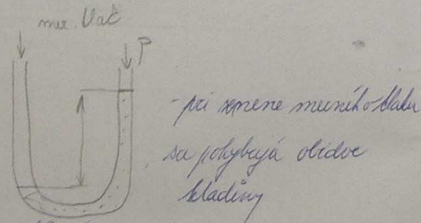 mer. tlač
P
- pri zmene merného tlaku
sa pohybujú obidve
hladiny